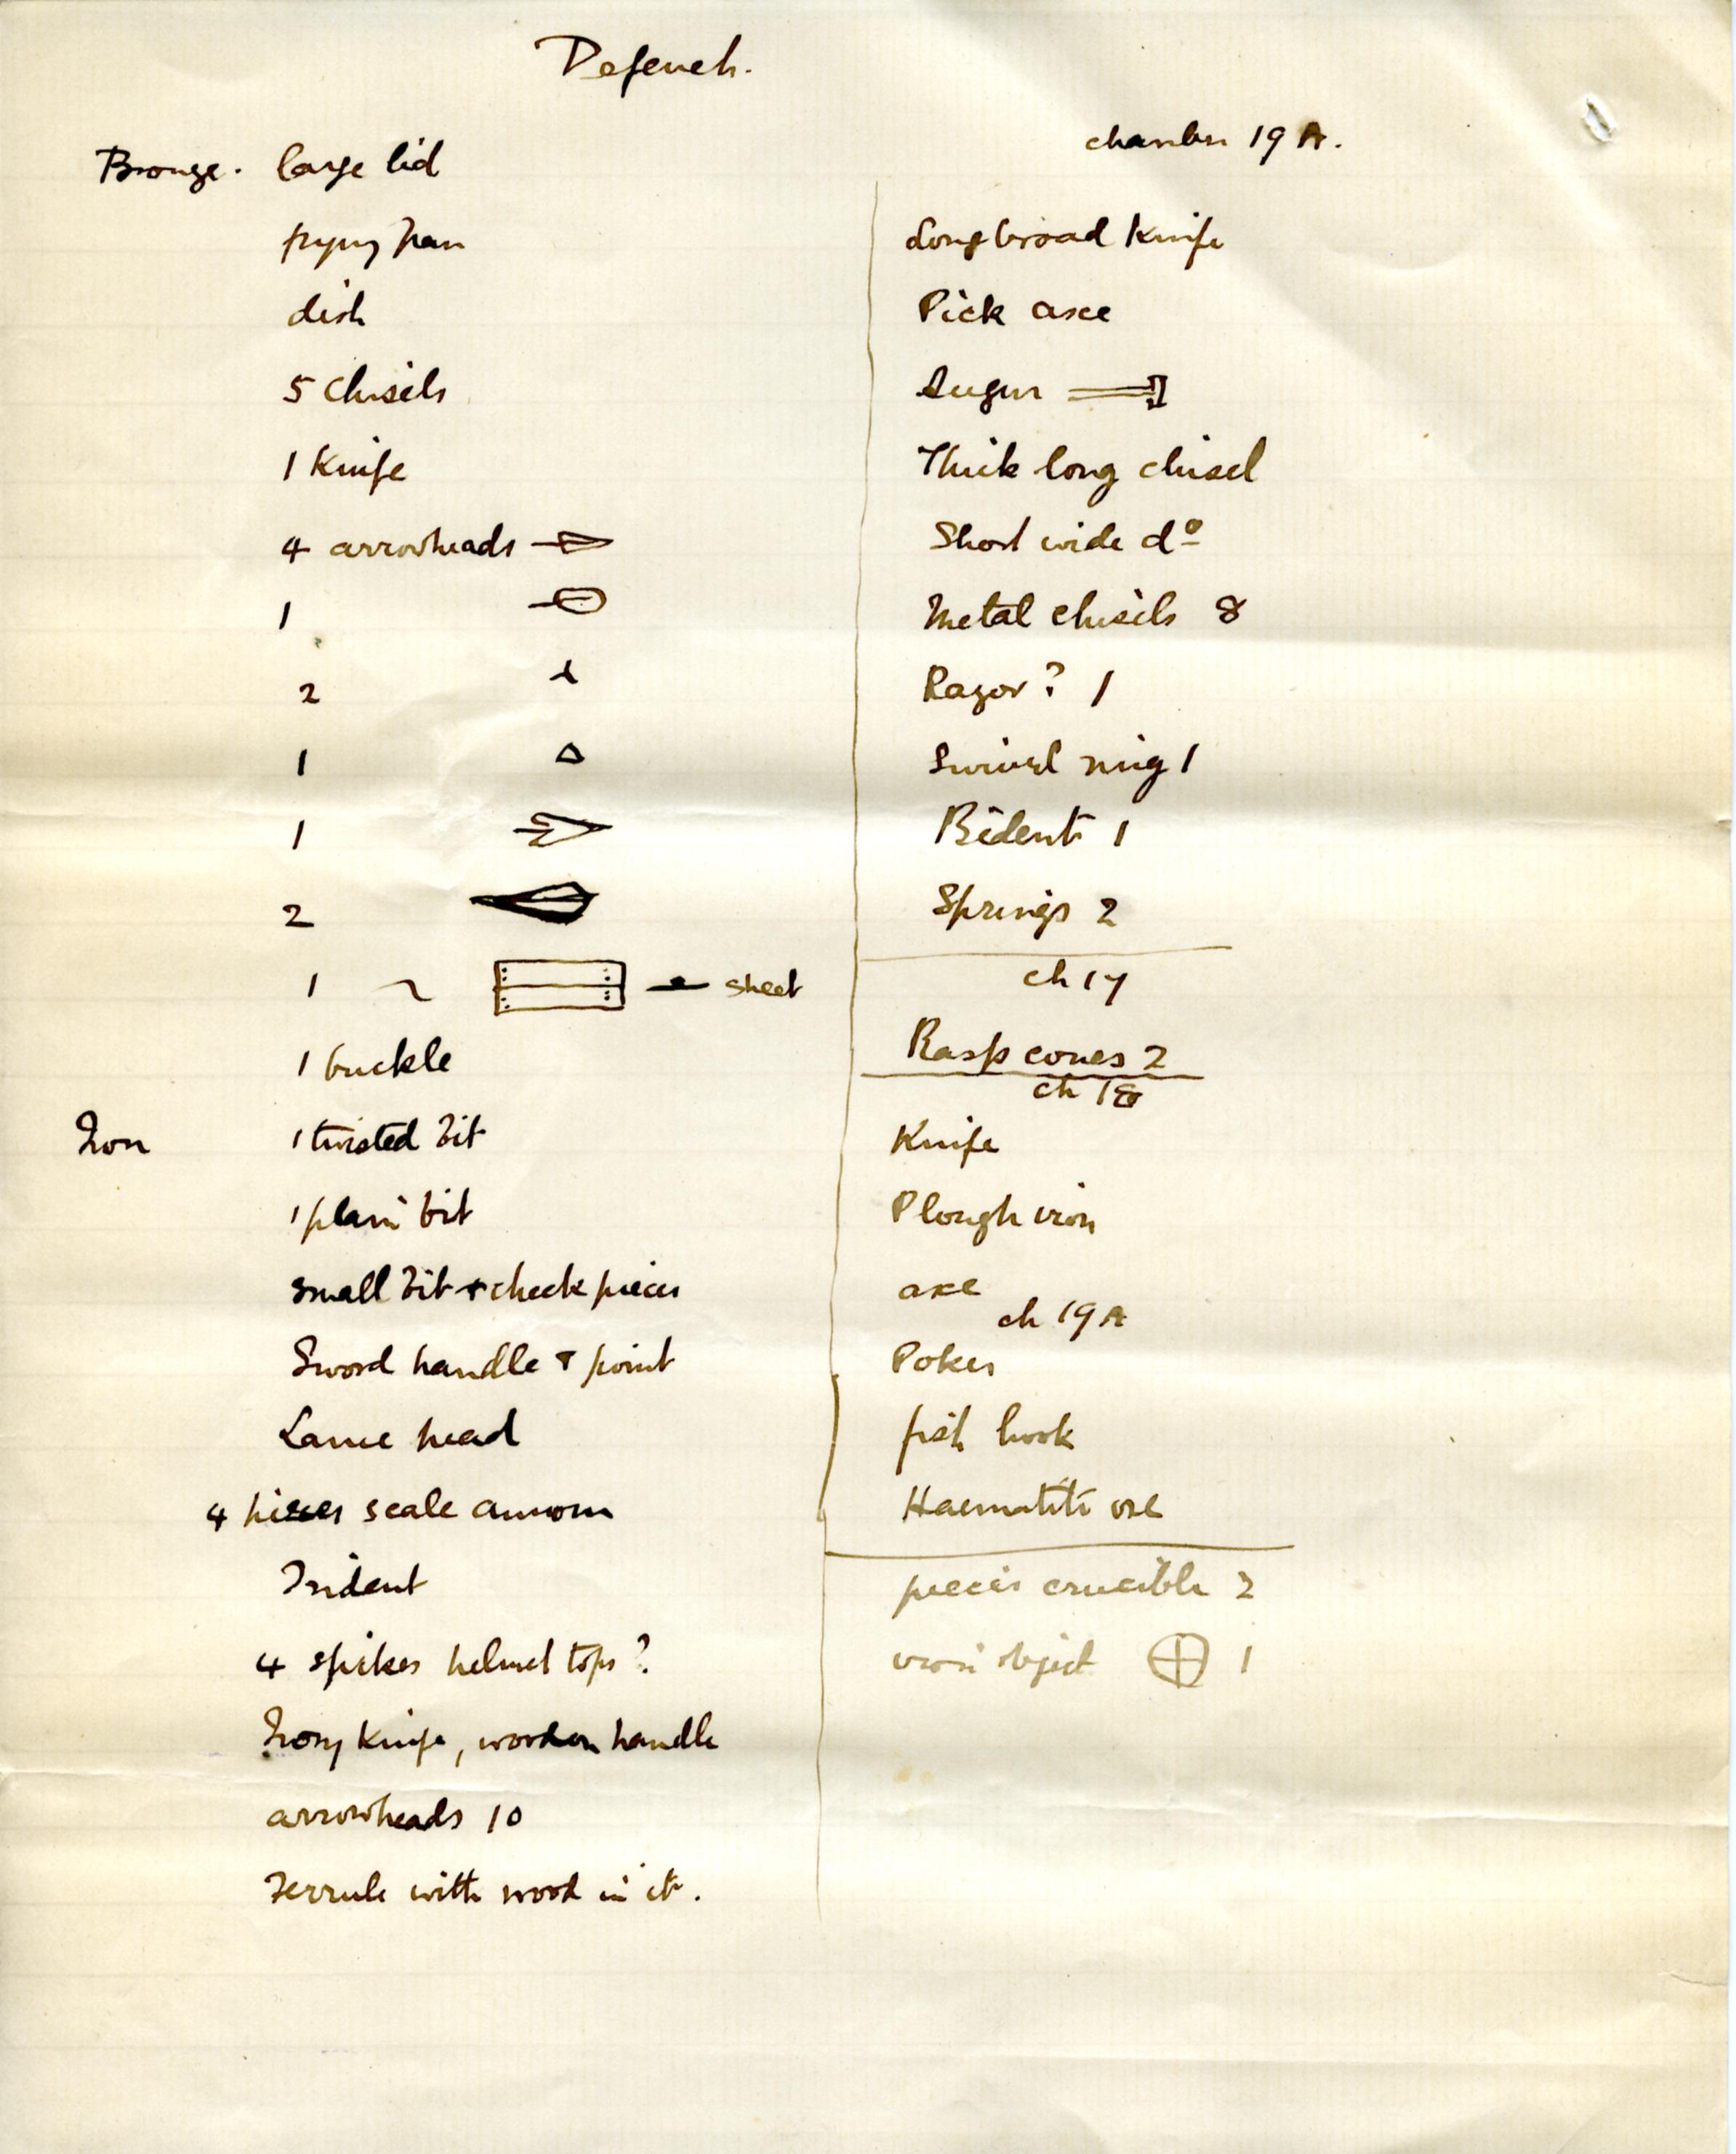 Defeneh.
Bronze. large lid
frying pan
dish
5 chisels
1 Knife
4 arrowheads
1
2
1
1
2
1 sheet
1 buckle
Iron 1 twisted bit
1 plain bit
small bit + cheek pieces
Sword handle + point
Lance head
4 pieces scale armour
Trident
4 spikes helmet tops?
Irony Knife, wooden handle
arrowheads 10
Ferrule with wood in it.
chamber 19 A.
Long broad Knife
Pick axe
Augur
Thick long chisel
Short wide dº
Metal chisels 8
Razor? 1
Swivel ring 1
Bident 1
Springs 2
ch 17
Rasp cones 2
ch 18
Knife
Plough iron
axe
ch 19 A
Poker
fish hook
Haematite ore
pieces crucible 2
iron object 1